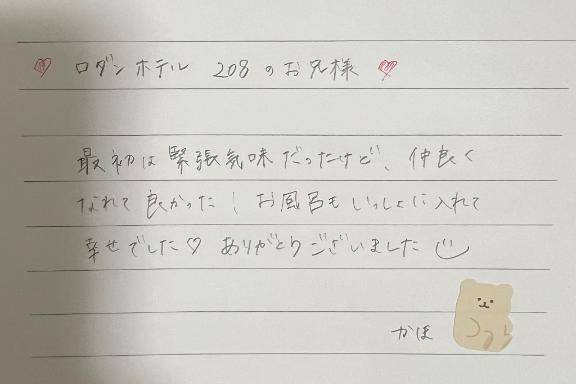 ♡ ロダンホテル 208のお兄様 ♡
最初は緊張気味だったけど、仲良く
なれて良かった! お風呂もいっしょに入れて
幸せでした♡ ありがとうございました
かほ